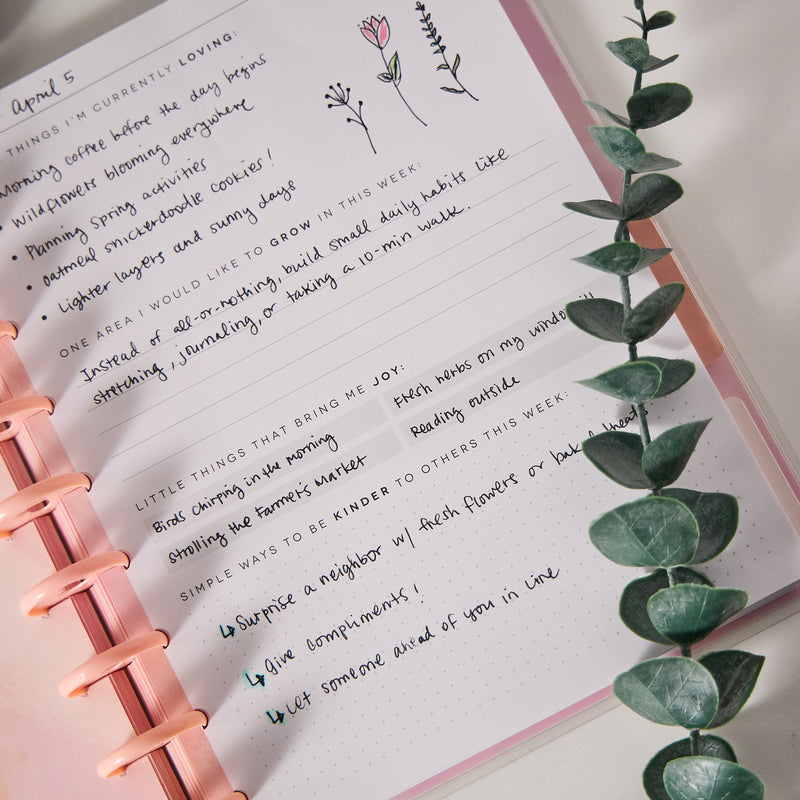 April 5
THINGS I'M CURRENTLY LOVING:
Morning coffee before the day begins
• Wildflowers blooming everywhere
• Planning spring activities
• oatmeal snickerdoodle cookies!
• Lighter layers and sunny days
ONE AREA I WOULD LIKE TO GROW IN THIS WEEK:
Instead of all-or-nothing, build small daily habits like
stretching, journaling, or taking a 10-min walk.
LITTLE THINGS THAT BRING ME JOY:
Birds chirping in the morning
Fresh herbs on my windowsill
strolling the Farmer's Market
Reading outside
SIMPLE WAYS TO BE KINDER TO OTHERS THIS WEEK:
↳ Surprise a neighbor w/ fresh flowers or baked treats
↳ Give compliments!
↳ Let someone ahead of you in line